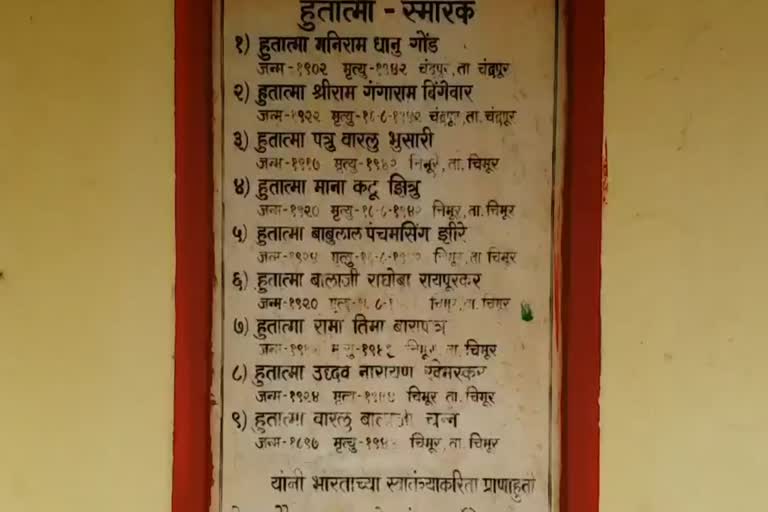 हुतात्मा - स्मारक
१) हुतात्मा मनिराम धानु गोंड
जन्म-१९०२ मृत्यु-१९४२ चंद्रपूर, ता चंद्रपूर
२) हुतात्मा श्रीराम गंगाराम बिंगेवार
जन्म-१९२२ मृत्यु-१६-८-१९४२ चंद्रपूर, ता. चंद्रपूर
३) हुतात्मा पत्रु वारलु भुसारी
जन्म-१९१७ मृत्यु-१९४२ चिमूर, ता. चिमूर
४) हुतात्मा माना कटू झित्रु
जन्म-१९२० मृत्यु-१६-८-१९४२ चिमूर, ता. चिमूर
५) हुतात्मा बाबुलाल पंचमसिंग झीरे
जन्म-१९२४ मृत्यु-१६-८- चिमूर, ता चिमूर
६) हुतात्मा बालाजी राघोबा रायपूरकर
जन्म-१९२० मृत्यु चिमूर, ता. चिमूर
७) हुतात्मा रामा तिमा
मृत्यु चिमूर ता. चिमूर
८) हुतात्मा उध्दव नारायण खेमस्कर
जन्म-१९२४ मृत्यु चिमूर ता. चिमूर
९) हुतात्मा वारलु बालाजी
जन्म-१८९७ मृत्यु चिमूर, ता. चिमूर
यांनी भारताच्या स्वातंत्र्याकरिता प्राणाहुती